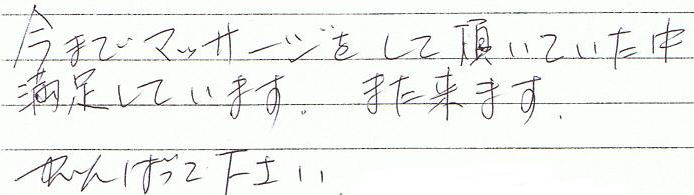 今までマッサージをして頂いていた中
満足しています。また来ます.
がんばって下さい